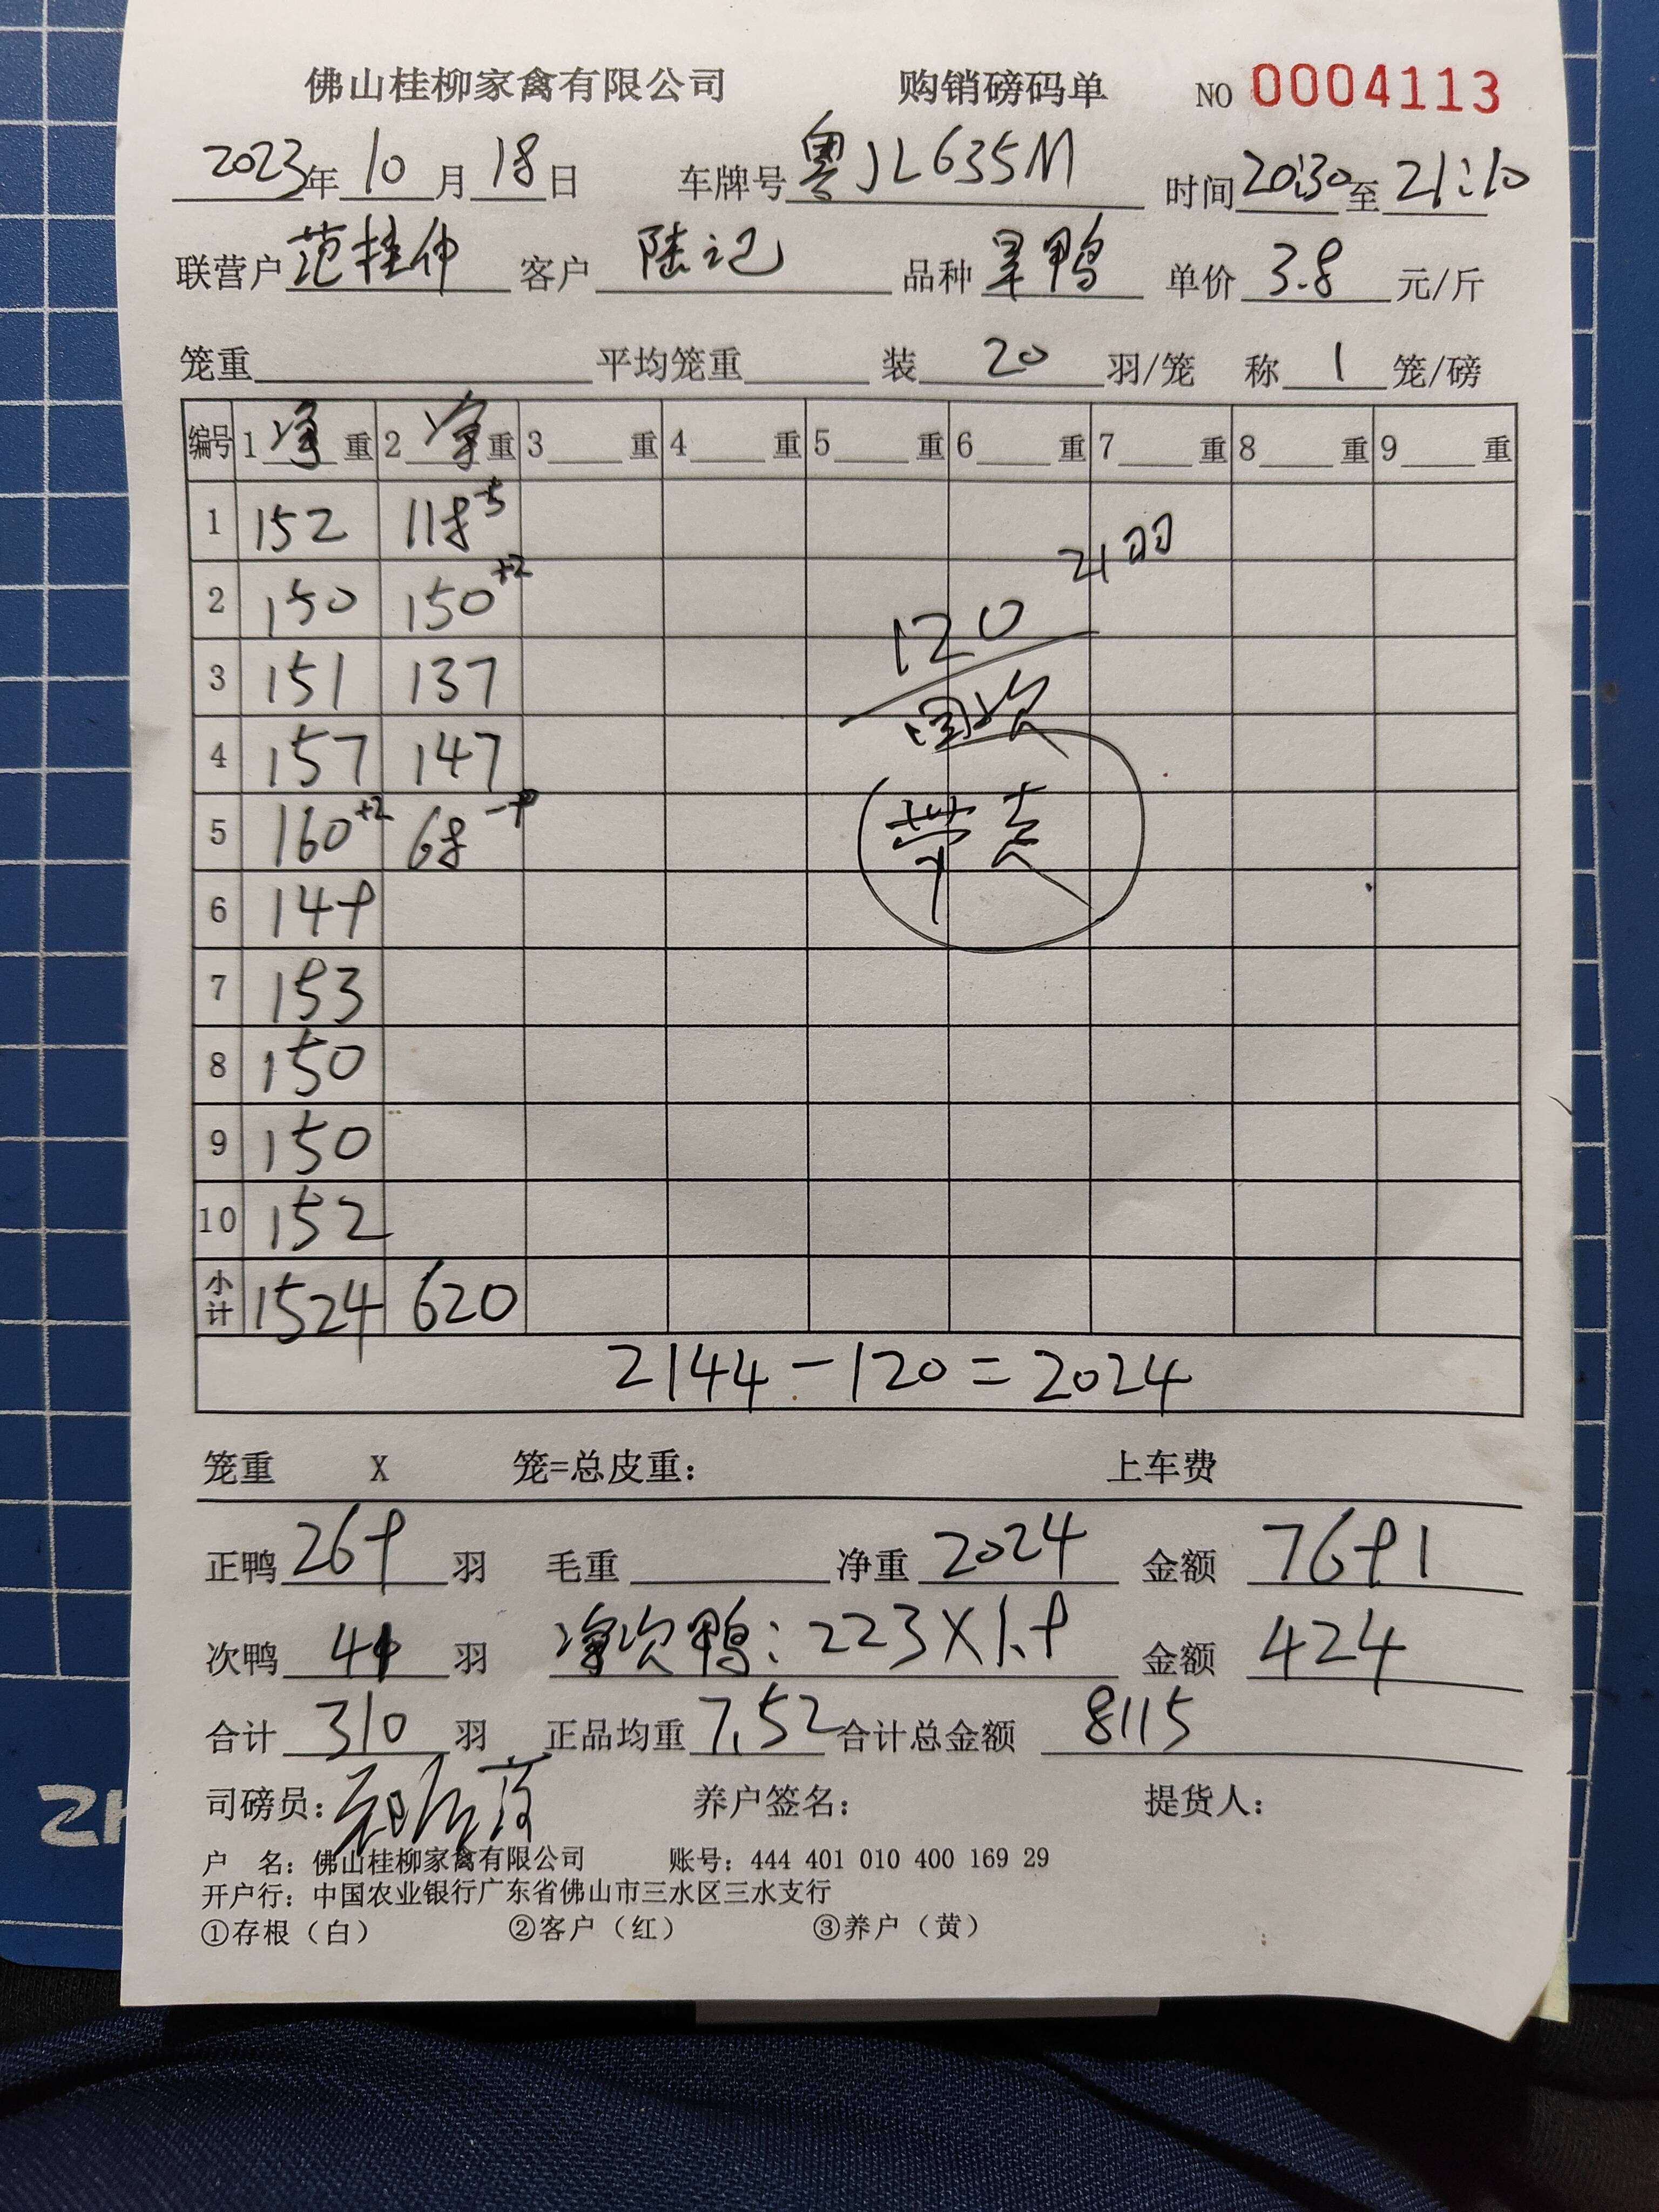 佛山桂柳家禽有限公司 购销磅码单 NO 0004113
2023年10月18日 车牌号粤JL635M 时间20:30至21:10
联营户范桂仲 客户 陆记 品种旱鸭 单价3.8元/斤
笼重 平均笼重 装20羽/笼 称1笼/磅
编号 1净重 2净重 3重 4重 5重 6重 7重 8重 9重
1 152 118-5
21羽
2 150 150+2
120
3 151 137
4 157 147
5 160+2 68-9
带走
6 149
7 153
8 150
9 150
10 152
小计 1524 620
2144-120=2024
笼重 X 笼=总皮重: 上车费
正鸭269羽 毛重 净重2024 金额7691
次鸭41羽 净次鸭:223X1.9 金额424
合计310羽 正品均重7.52 合计总金额8115
司磅员: 养户签名: 提货人:
户 名: 佛山桂柳家禽有限公司 账号: 444 401 010 400 169 29
开户行: 中国农业银行广东省佛山市三水区三水支行
①存根(白) ②客户(红) ③养户(黄)